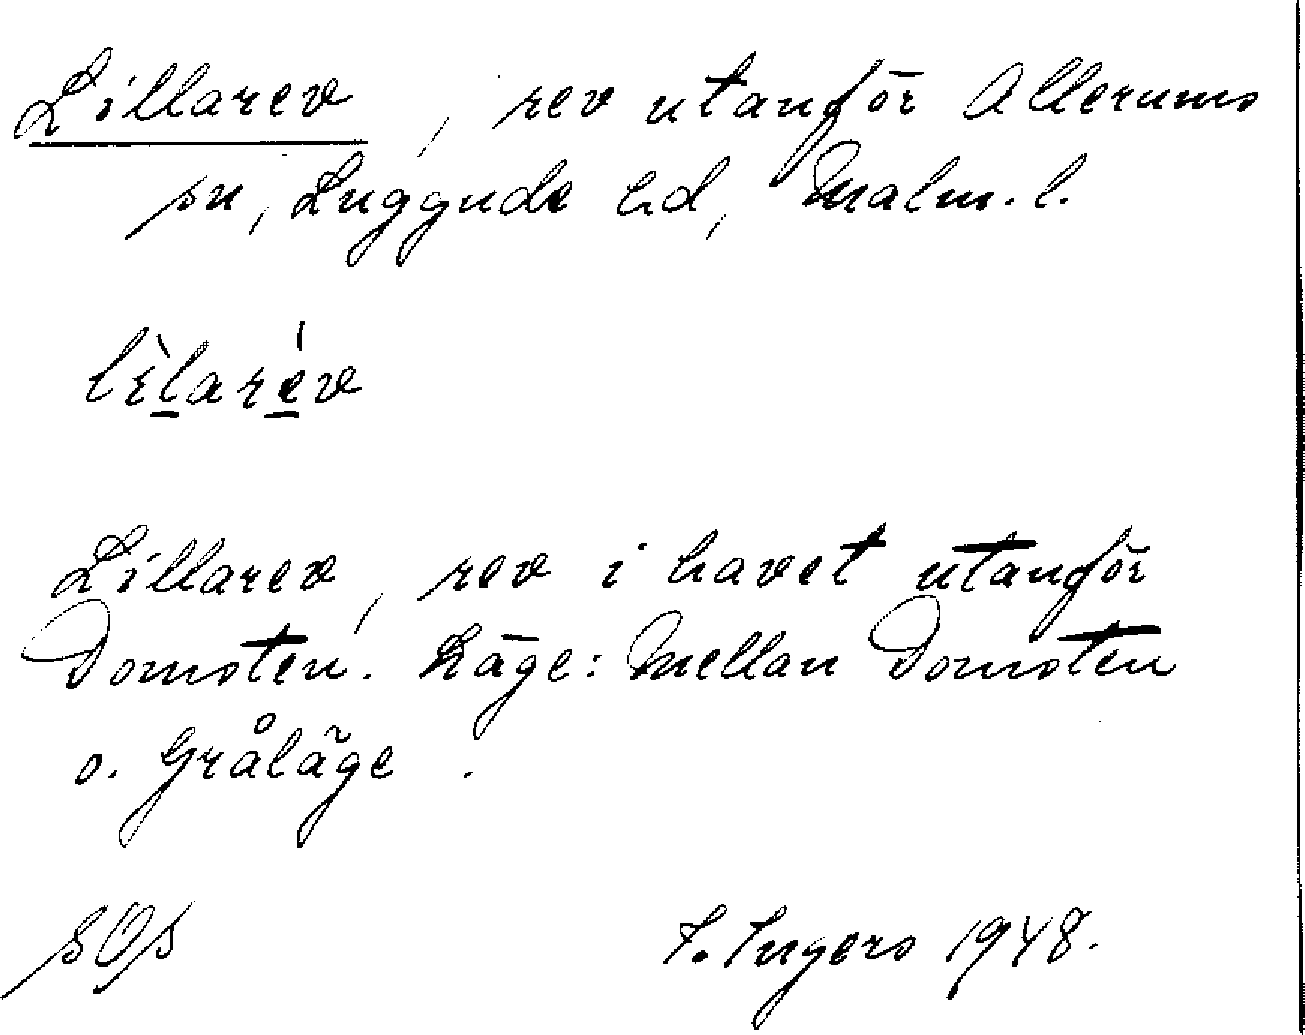 Lillarev, rev utanför Allerums
sn, Luggude hd, Malm. l.
lìlarév
Lillarev, rev i havet utanför
Domsten. Läge: Mellan Domsten
o. Gråläge.
I. Ingers 1948.